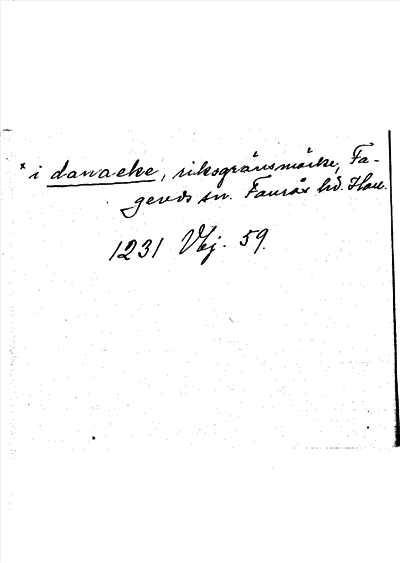 * i danaeke, riksgränsmärke, Fa-
gereds sn. Faurås hd. Hall.
1231 Vbj. 59.